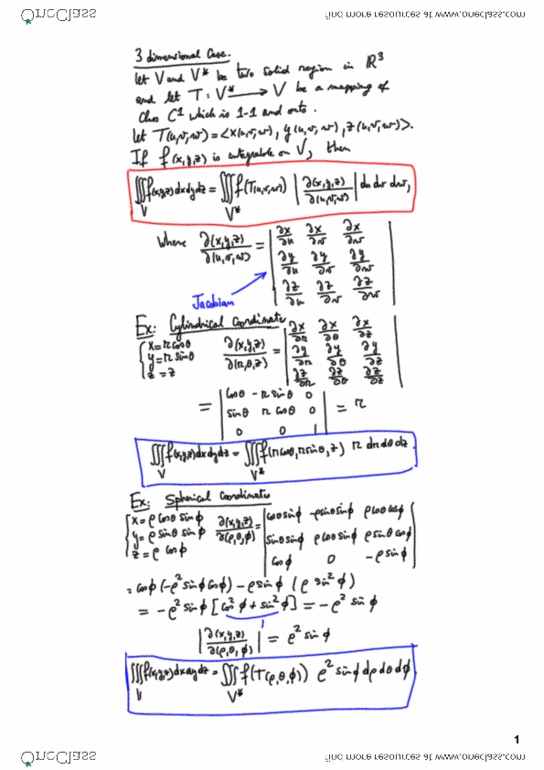 OneClass
find more resources at www.oneclass.com
3 dimensional Case.
Let V and V* be two solid region in ℝ³
and let T: V* ⟶ V be a mapping of
Class C¹ which is 1-1 and onto.
Let T(u,v,w) = <x(u,v,w), y(u,v,w), z(u,v,w)>.
If f(x,y,z) is integrable on V, then
∭_V f(x,y,z) dx dy dz = ∭_V* f(T(u,v,w)) |∂(x,y,z)/∂(u,v,w)| du dv dw,
Where ∂(x,y,z)/∂(u,v,w) = | ∂x/∂u ∂x/∂v ∂x/∂w |
| ∂y/∂u ∂y/∂v ∂y/∂w |
| ∂z/∂u ∂z/∂v ∂z/∂w |
Jacobian
Ex: Cylindrical Coordinate
{ x = r cosθ
y = r sinθ
z = z
∂(x,y,z)/∂(r,θ,z) = | ∂x/∂r ∂x/∂θ ∂x/∂z |
| ∂y/∂r ∂y/∂θ ∂y/∂z |
| ∂z/∂r ∂z/∂θ ∂z/∂z |
= | cosθ -r sinθ 0 |
| sinθ r cosθ 0 | = r
| 0 0 1 |
∭_V f(x,y,z) dx dy dz = ∭_V* f(r cosθ, r sinθ, z) r dr dθ dz
Ex: Spherical Coordinate
{ x = ρ cosθ sinφ
y = ρ sinθ sinφ
z = ρ cosφ
∂(x,y,z)/∂(ρ,θ,φ) = | cosθ sinφ -ρ sinθ sinφ ρ cosθ cosφ |
| sinθ sinφ ρ cosθ sinφ ρ sinθ cosφ |
| cosφ 0 -ρ sinφ |
= cosφ (-ρ² sinφ cosφ) - ρ sinφ (ρ sin²φ)
= -ρ² sinφ [cos²φ + sin²φ] = -ρ² sinφ
1
|∂(x,y,z)/∂(ρ,θ,φ)| = ρ² sinφ
∭_V f(x,y,z) dx dy dz = ∭_V* f(T(ρ,θ,φ)) ρ² sinφ dρ dθ dφ
1
OneClass
find more resources at www.oneclass.com